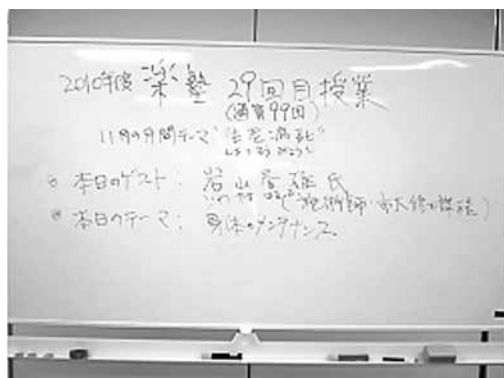 2010年度 楽塾 29回目授業
(通算99回)
11月の月間テーマ"生老病死"
しょうろうびょうし
◎ 本日のゲスト: 岩山 雄氏
いわやま 施術師・
◎ 本日のテーマ: 身体のメンテナンス